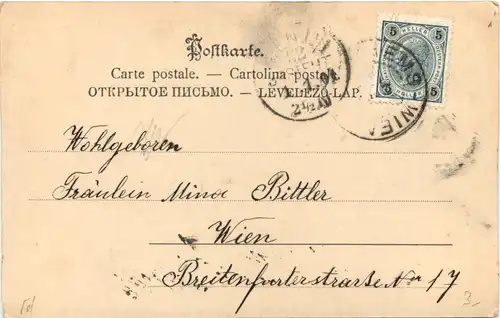 Postkarte.
Carte postale. — Cartolina postale.
ОТКРЫТОЕ ПИСЬМО. — LEVELEZŐ-LAP.
5 HELLER 5
5 5
WIEN
Wohlgeboren
Fräulein Minna Bittler
Wien
Breitenfurterstrasse Nr 17
3.-